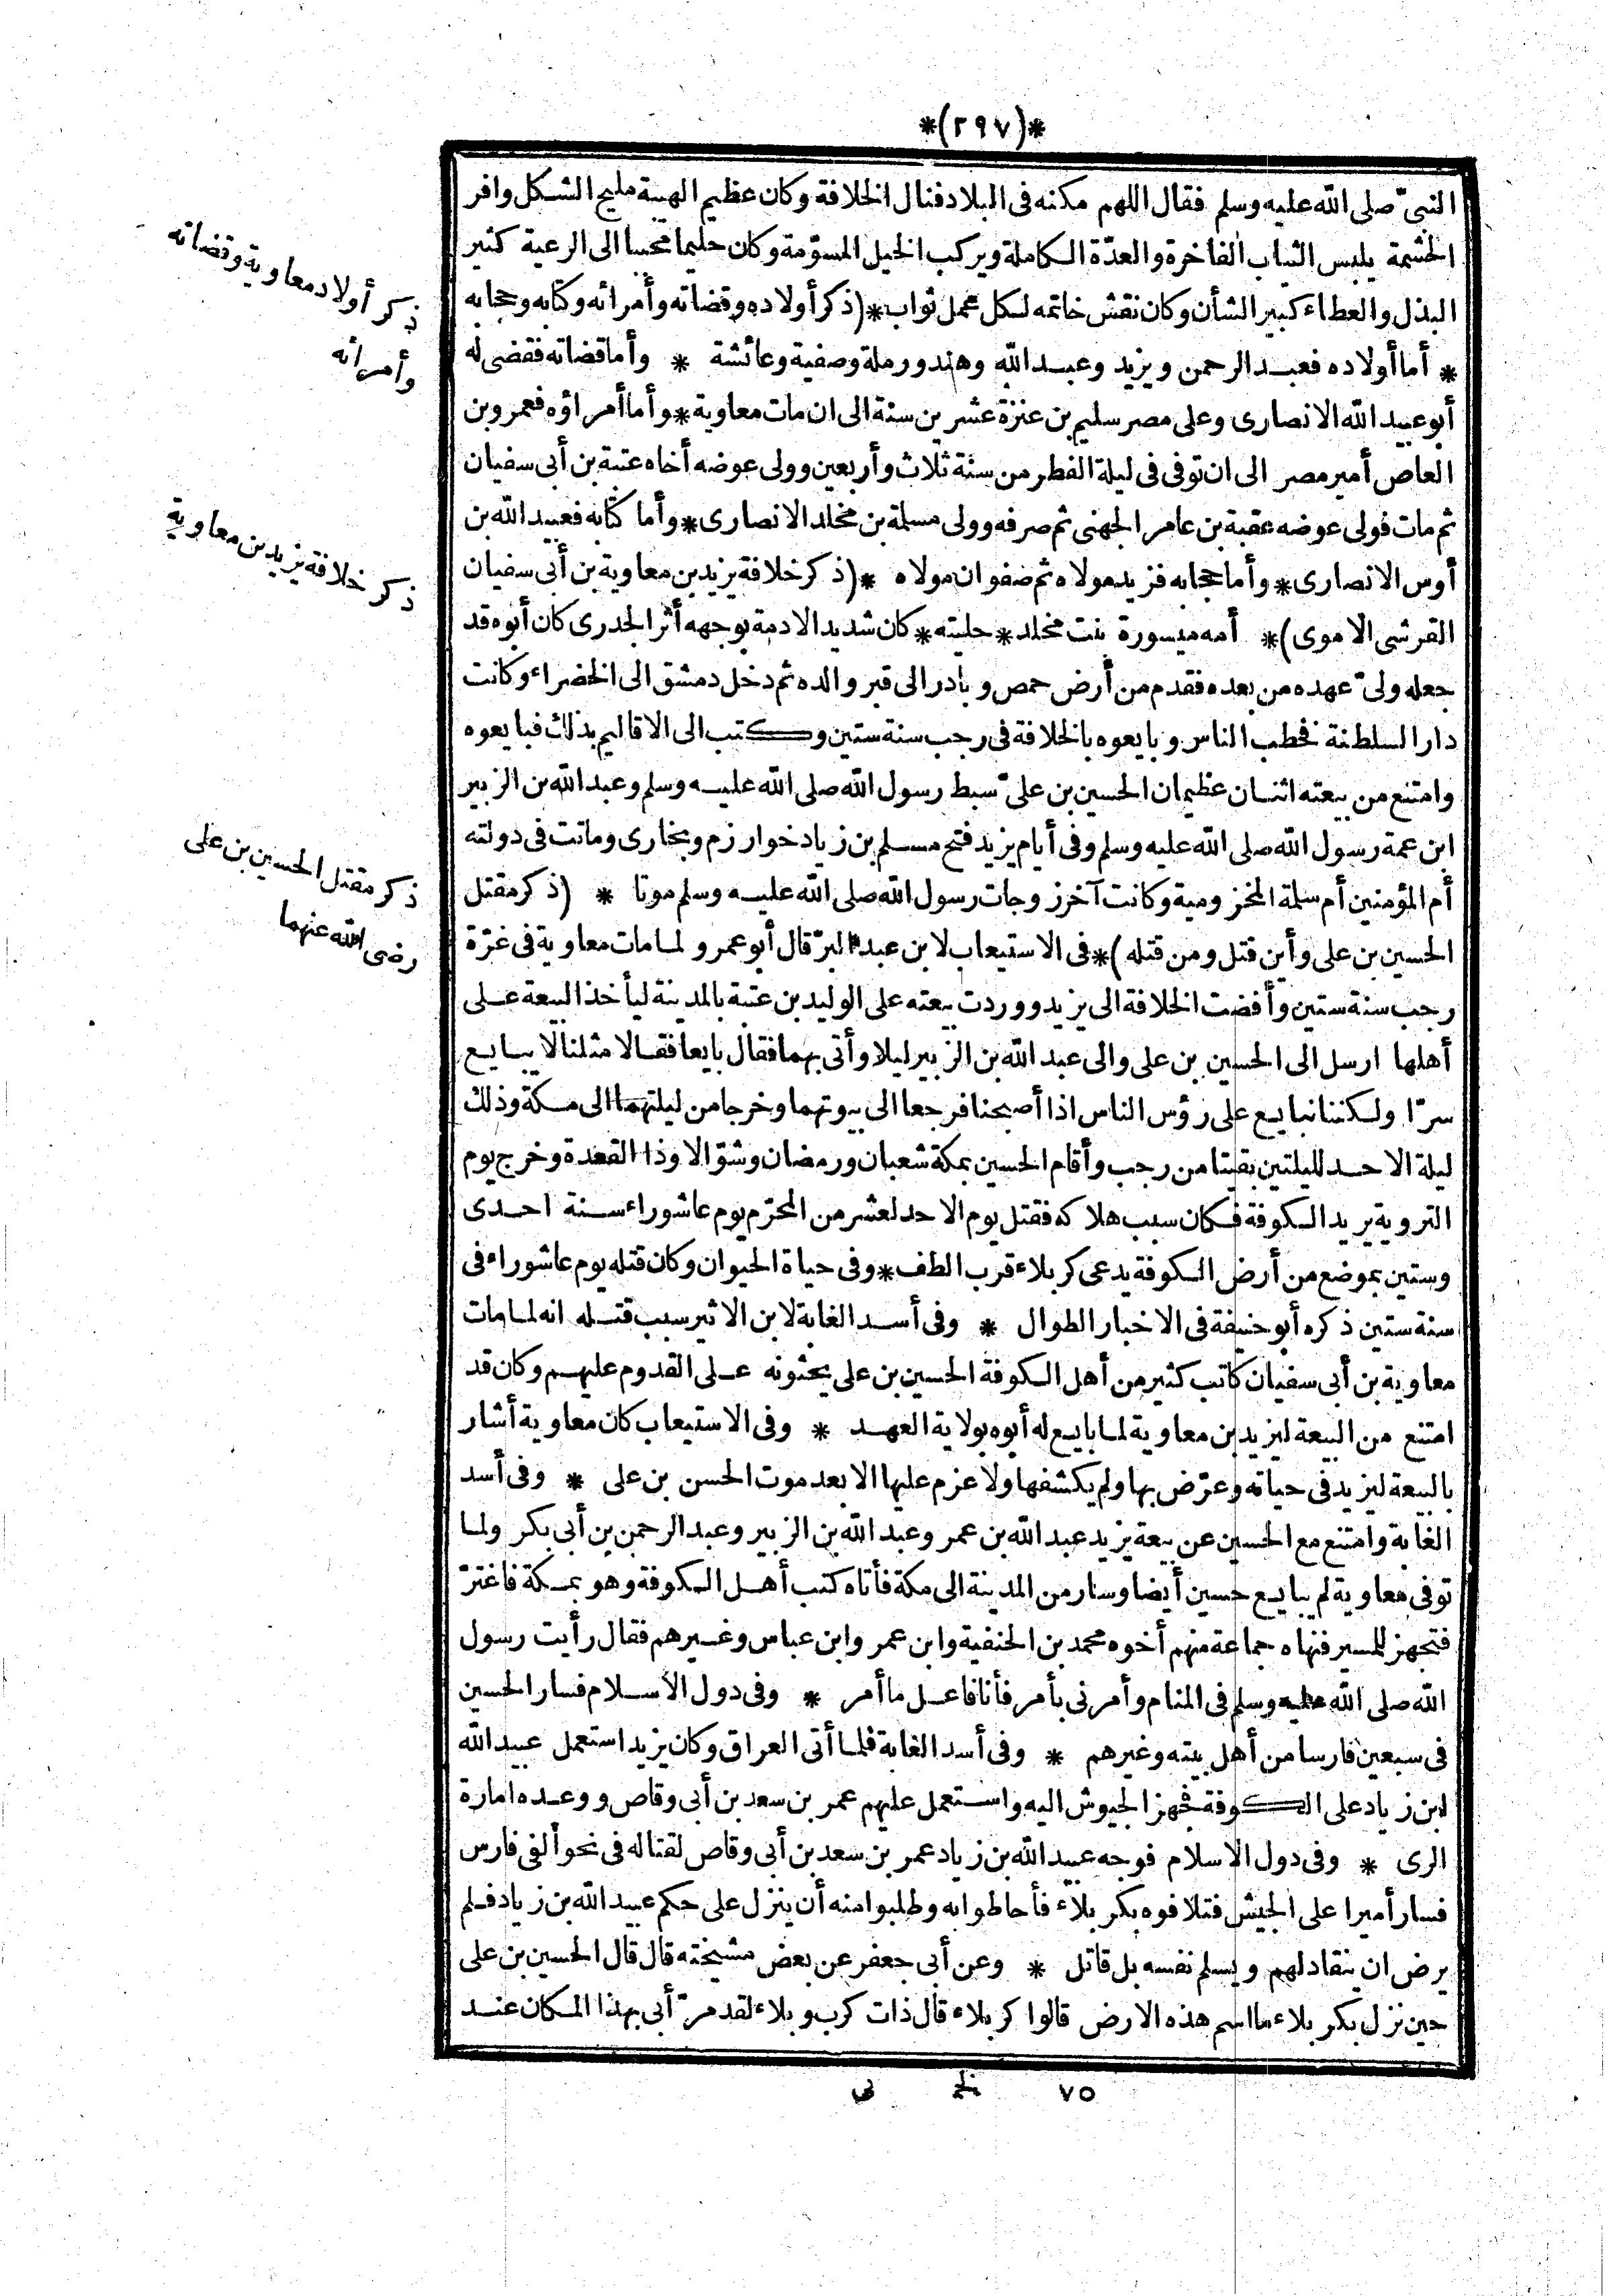 *(٢٩٧)*
النبىّ صلى الله عليه وسلم فقال اللهم مكنه فى البلاد فنال الخلافة وكان عظيم الهيبة مليح الشكل وافر
الحشمة يلبس الثياب الفاخرة والعدّة الكاملة ويركب الخيل المسوّمة وكان حليما محببا الى الرعية كثير
البذل والعطاء كبير الشأن وكان نقش خاتمه لكل عمل ثواب *(ذكر أولاده وقضاته وأمرائه وكتابه وحجابه
* أما أولاده فعبد الرحمن ويزيد وعبد الله وهند ورملة وصفية وعائشة * وأما قضاته فقضى له
أبو عبيد الله الانصارى وعلى مصر سليم بن عنزة عشرين سنة الى ان مات معاوية * وأما أمراؤه فعمرو بن
العاص أمير مصر الى ان توفى فى ليلة الفطر من سنة ثلاث وأربعين وولى عوضه أخاه عتبة بن أبى سفيان
ثم مات فولى عوضه عقبة بن عامر الجهنى ثم صرفه وولى مسلمة بن مخلد الانصارى * وأما كتابه فعبيد الله بن
أوس الانصارى * وأما حجابه فزيد مولاه ثم صفوان مولاه *(ذكر خلافة يزيد بن معاوية بن أبى سفيان
القرشى الاموى)* أمه ميسورة بنت مخلد * حليته * كان شديد الادمة بوجهه أثر الجدرى كان أبوه قد
جعله ولىّ عهده من بعده فقدم من أرض حمص وبادر الى قبر والده ثم دخل دمشق الى الخضراء وكانت
دار السلطنة فخطب الناس وبايعوه بالخلافة فى رجب سنة ستين وكتب الى الاقاليم بذلك فبايعوه
وامتنع من بيعته اثنان عظيمان الحسين بن علىّ سبط رسول الله صلى الله عليه وسلم وعبد الله بن الزبير
ابن عمة رسول الله صلى الله عليه وسلم وفى أيام يزيد فتح مسلم بن زياد خوارزم وبخارى وماتت فى دولته
أم المؤمنين أم سلمة المخزومية وكانت آخر زوجات رسول الله صلى الله عليه وسلم موتا * (ذكر مقتل
الحسين بن على وأين قتل ومن قتله)* فى الاستيعاب لابن عبد البرّ قال أبو عمر ولما مات معاوية فى غرّة
رجب سنة ستين وأفضت الخلافة الى يزيد ووردت بيعته على الوليد بن عتبة بالمدينة ليأخذ البيعة على
أهلها ارسل الى الحسين بن على والى عبد الله بن الزبير ليلا وأتى بهما فقال بايعا فقالا مثلنا لا يبايع
سرّا ولكننا نبايع على رؤس الناس اذا أصبحنا فرجعا الى بيوتهما وخرجا من ليلتهما الى مكة وذلك
ليلة الاحد لليلتين بقيتا من رجب وأقام الحسين بمكة شعبان ورمضان وشوّالا وذا القعدة وخرج يوم
التروية يريد الكوفة فكان سبب هلاكه فقتل يوم الاحد لعشر من المحرّم يوم عاشوراء سنة احدى
وستين بموضع من أرض الكوفة يدعى كربلاء قرب الطف * وفى حياة الحيوان وكان قتله يوم عاشوراء فى
سنة ستين ذكره أبو حنيفة فى الاخبار الطوال * وفى أسد الغابة لابن الاثير سبب قتله انه لما مات
معاوية بن أبى سفيان كاتب كثير من أهل الكوفة الحسين بن على يحثونه على القدوم عليهم وكان قد
امتنع من البيعة ليزيد بن معاوية لما بايع له أبوه بولاية العهد * وفى الاستيعاب كان معاوية أشار
بالبيعة ليزيد فى حياته وعرّض بها ولم يكشفها ولا عزم عليها الا بعد موت الحسن بن على * وفى أسد
الغابة وامتنع مع الحسين عن بيعة يزيد عبد الله بن عمر وعبد الله بن الزبير وعبد الرحمن بن أبى بكر ولما
توفى معاوية لم يبايع حسين أيضا وسار من المدينة الى مكة فأتاه كتب أهل الكوفة وهو بمكة فاغترّ
فتجهز للمسير فنهاه جماعة منهم أخوه محمد بن الحنفية وابن عمر وابن عباس وغيرهم فقال رأيت رسول
الله صلى الله عليه وسلم فى المنام وأمرنى بأمر فأنا فاعل ما أمر * وفى دول الاسلام فسار الحسين
فى سبعين فارسا من أهل بيته وغيرهم * وفى أسد الغابة فلما أتى العراق وكان يزيد استعمل عبيد الله
ابن زياد على الكوفة فجهز الجيوش اليه واستعمل عليهم عمر بن سعد بن أبى وقاص ووعده امارة
الرى * وفى دول الاسلام فوجه عبيد الله بن زياد عمر بن سعد بن أبى وقاص لقتاله فى نحو ألفى فارس
فسار أميرا على الجيش فتلافوه بكربلاء فأحاطوا به وطلبوا منه أن ينزل على حكم عبيد الله بن زياد فلم
يرض ان ينقاد لهم ويسلم نفسه بل قاتل * وعن أبى جعفر عن بعض مشيخته قال قال الحسين بن على
حين نزل بكربلاء ما اسم هذه الارض قالوا كربلاء قال ذات كرب وبلاء لقد مرّ أبى بهذا المكان عند
٧٥ نى
ذكر أولاد معاوية وقضاته
وأمرائه
ذكر خلافة يزيد بن معاوية
ذكر مقتل الحسين بن على
رضى الله عنهما